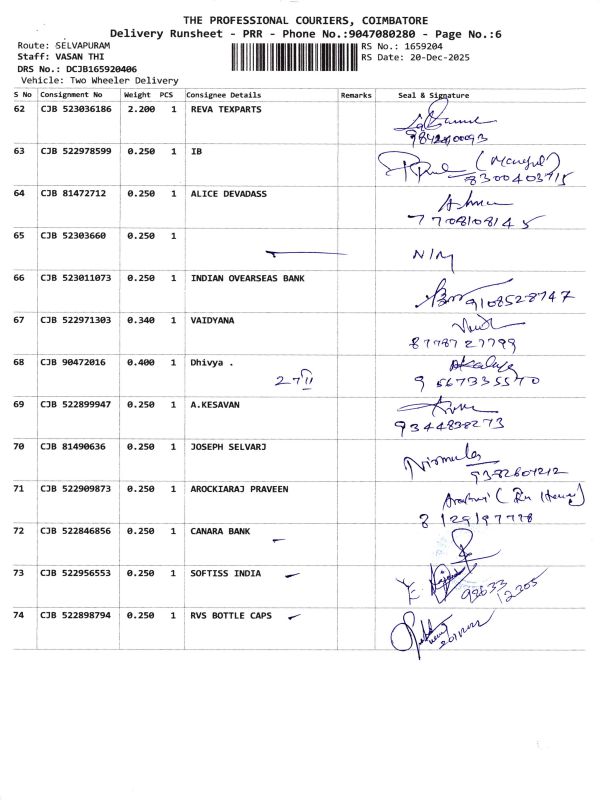 THE PROFESSIONAL COURIERS, COIMBATORE
Delivery Runsheet - PRR - Phone No.:9047080280 - Page No.:6
Route: SELVAPURAM RS No.: 1659204
Staff: VASAN THI RS Date: 20-Dec-2025
DRS No.: DCJB165920406
Vehicle: Two Wheeler Delivery
S No Consignment No Weight PCS Consignee Details Remarks Seal & Signature
62 CJB 523036186 2.200 1 REVA TEXPARTS
63 CJB 522978599 0.250 1 IB
8300403915
64 CJB 81472712 0.250 1 ALICE DEVADASS
7708108145
65 CJB 52303660 0.250 1 N/M
66 CJB 523011073 0.250 1 INDIAN OVEARSEAS BANK
9108528747
67 CJB 522971303 0.340 1 VAIDYANA
8778727799
68 CJB 90472016 0.400 1 Dhivya .
9667335570
69 CJB 522899947 0.250 1 A.KESAVAN
9344838273
70 CJB 81490636 0.250 1 JOSEPH SELVARJ
Nirmala
9382601212
71 CJB 522909873 0.250 1 AROCKIARAJ PRAVEEN
8129197778
72 CJB 522846856 0.250 1 CANARA BANK
73 CJB 522956553 0.250 1 SOFTISS INDIA
98633
12305
74 CJB 522898794 0.250 1 RVS BOTTLE CAPS